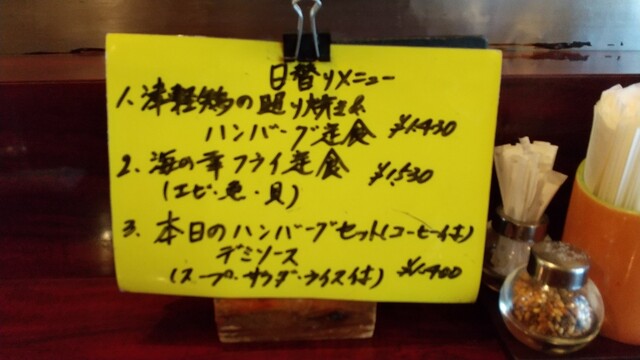 日替りメニュー
1. 津軽鶏の照り焼き&
ハンバーグ定食 ¥1,430
2. 海の幸フライ定食 ¥1,530
(エビ・魚・貝)
3. 本日のハンバーグセット(コーヒー付)
デミソース
(スープ・サラダ・ライス付) ¥1,400